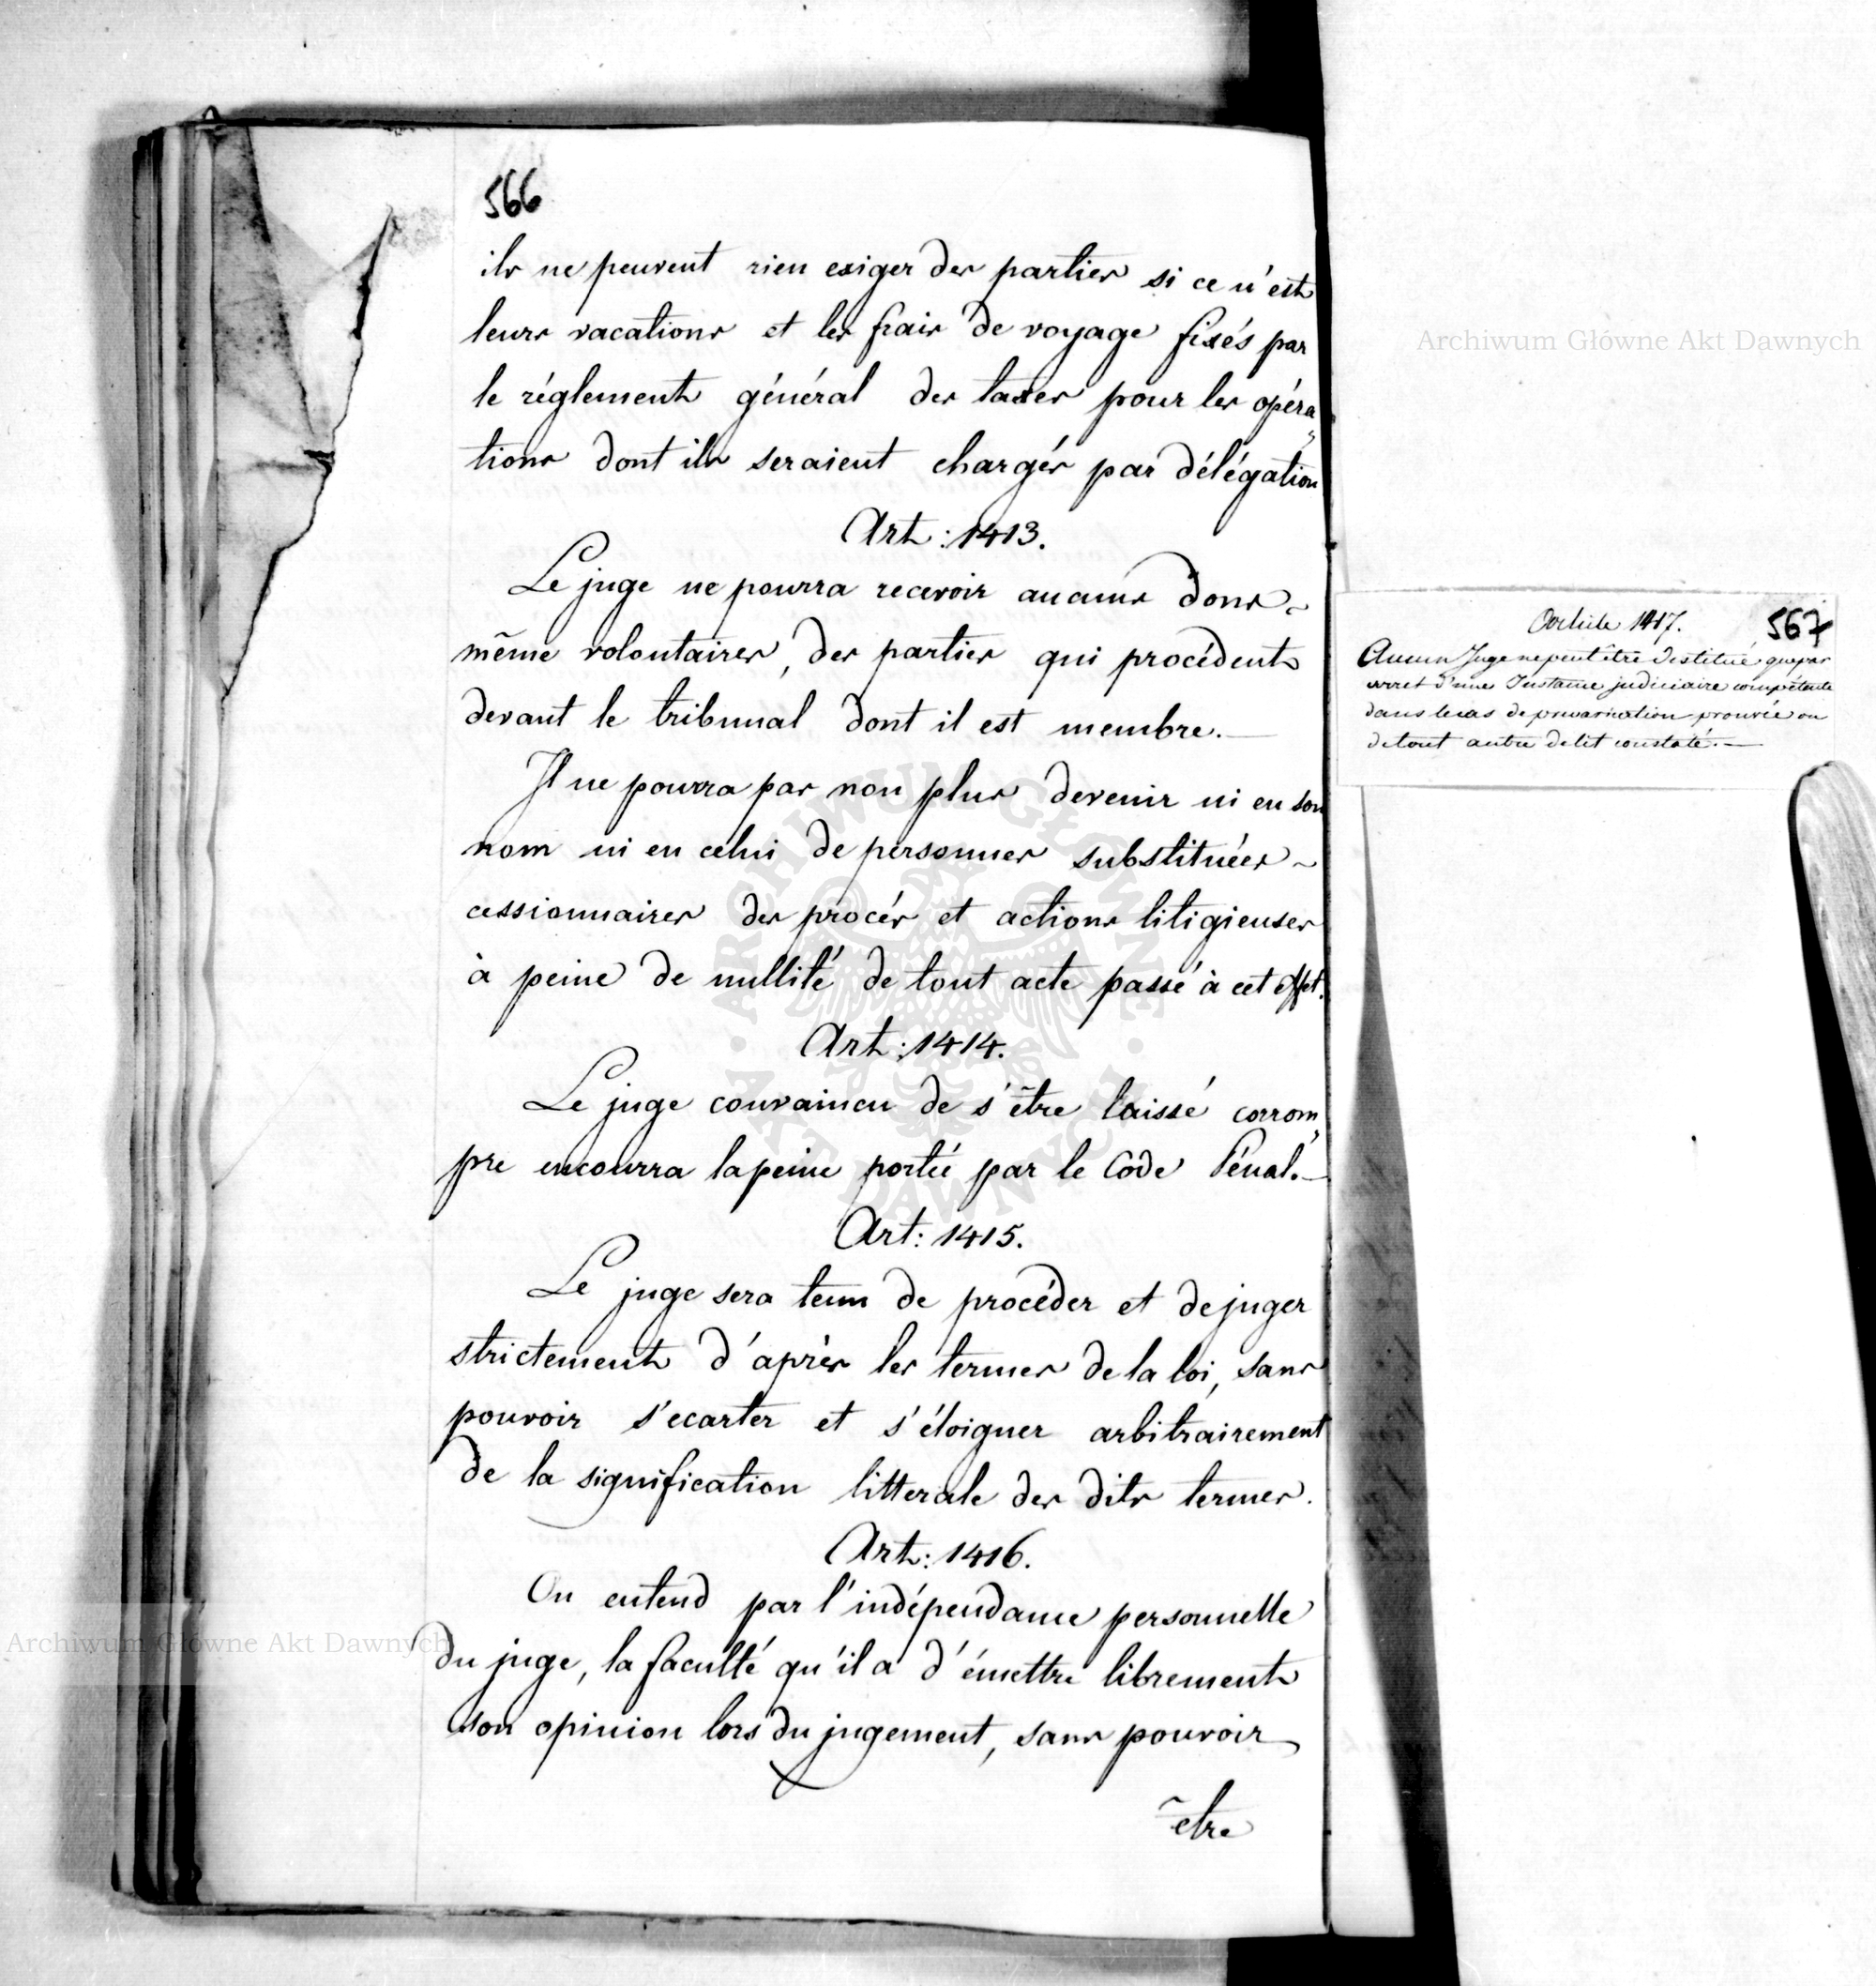 566
ils ne peuvent rien exiger des parties si ce n'est
leurs vacations et les frais de voyage fixés par
le réglement général des taxes pour les opéra„
tions dont ils seraient chargés par délégation
Art: 1413.
Le juge ne pourra recevoir aucuns dons~
même volontaires, des parties qui procédent
devant le tribunal dont il est membre.—
Il ne pourra pas non plus devenir ni en son
nom ni en celui de personnes substituées~
cessionnaires des procés et actions litigieuses
à peine de nullité de tout acte passé à cet effet.
Art: 1414.
Le juge convaincu de s'être laissé corrom„
pre encourra la peine portée par le Code Pénal.—
Art: 1415.
Le juge sera tenu de procéder et de juger
strictement d'après les termes de la loi, sans
pouvoir s'ecarter et s'éloigner arbitrairement
de la signification litterale des dits termes.
Art: 1416.
On entend par l'indépendance personnelle
du juge, la faculté qu'il a d'émettre librement
son opinion lors du jugement, sans pouvoir
être
567
Article 1417.
Aucun Juge ne peut être destitué que par
arret d'une Instance judiciaire compétente
dans le cas de prevarication prouvée ou
de tout autre delit constaté.—
Archiwum Główne Akt Dawnych
Archiwum Główne Akt Dawnych
ARCHIWUM GŁÓWNE
AKT DAWNYCH